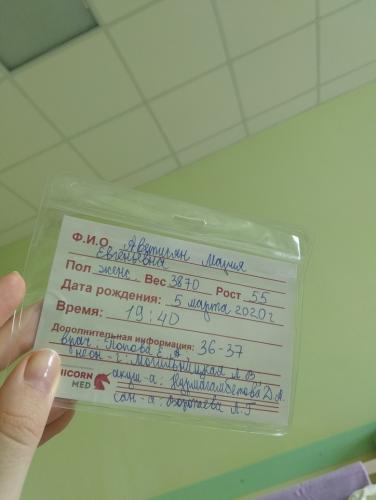 Ф.И.О. Аветисян Мария
Евгеньевна
Пол женс. Вес 3870 Рост 55
Дата рождения: 5 марта 2020 г
Время: 19:40
Дополнительная информация: 36-37
врач: Попова Е. А.
неон-г: Могильницкая Л В
акуш-а: Нурмагамбетова Д А.
сан-а: Воропаева Л. Г
UNICORN
MED